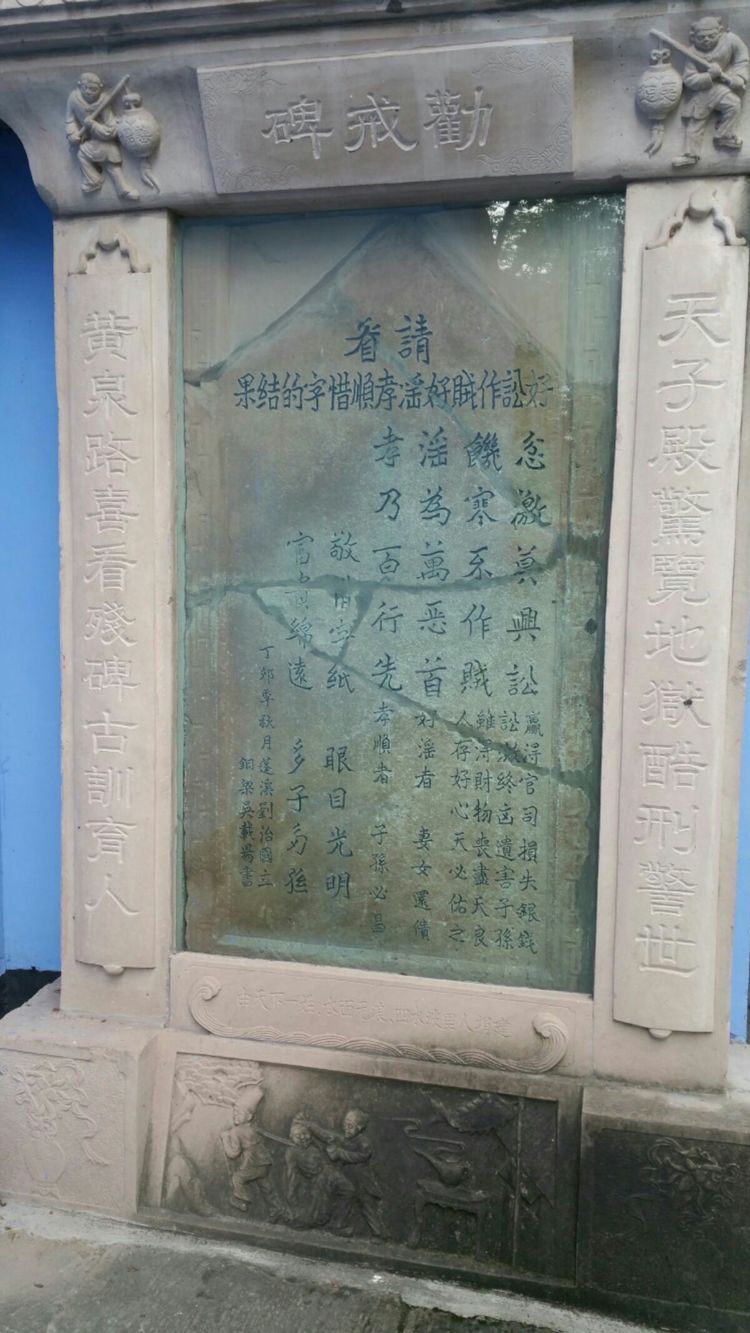 勸戒碑
天子殿驚覽地獄酷刑警世
請看
好訟作賊好淫孝順惜字的结果
忿激莫興訟 贏得官司損失銀錢
訟激終凶遺害子孫
饑寒不作賊 雖得財物喪盡天良
人存好心天必佑之
淫為萬恶首 好淫者 妻女還債
孝乃百行先 孝順者 子孫必昌
敬惜字紙 眼目光明
富貴綿遠 多子多孫
丁卯季秋月蓬溪劉治國立
銅梁吳載揚書
黃泉路喜看殘碑古訓育人